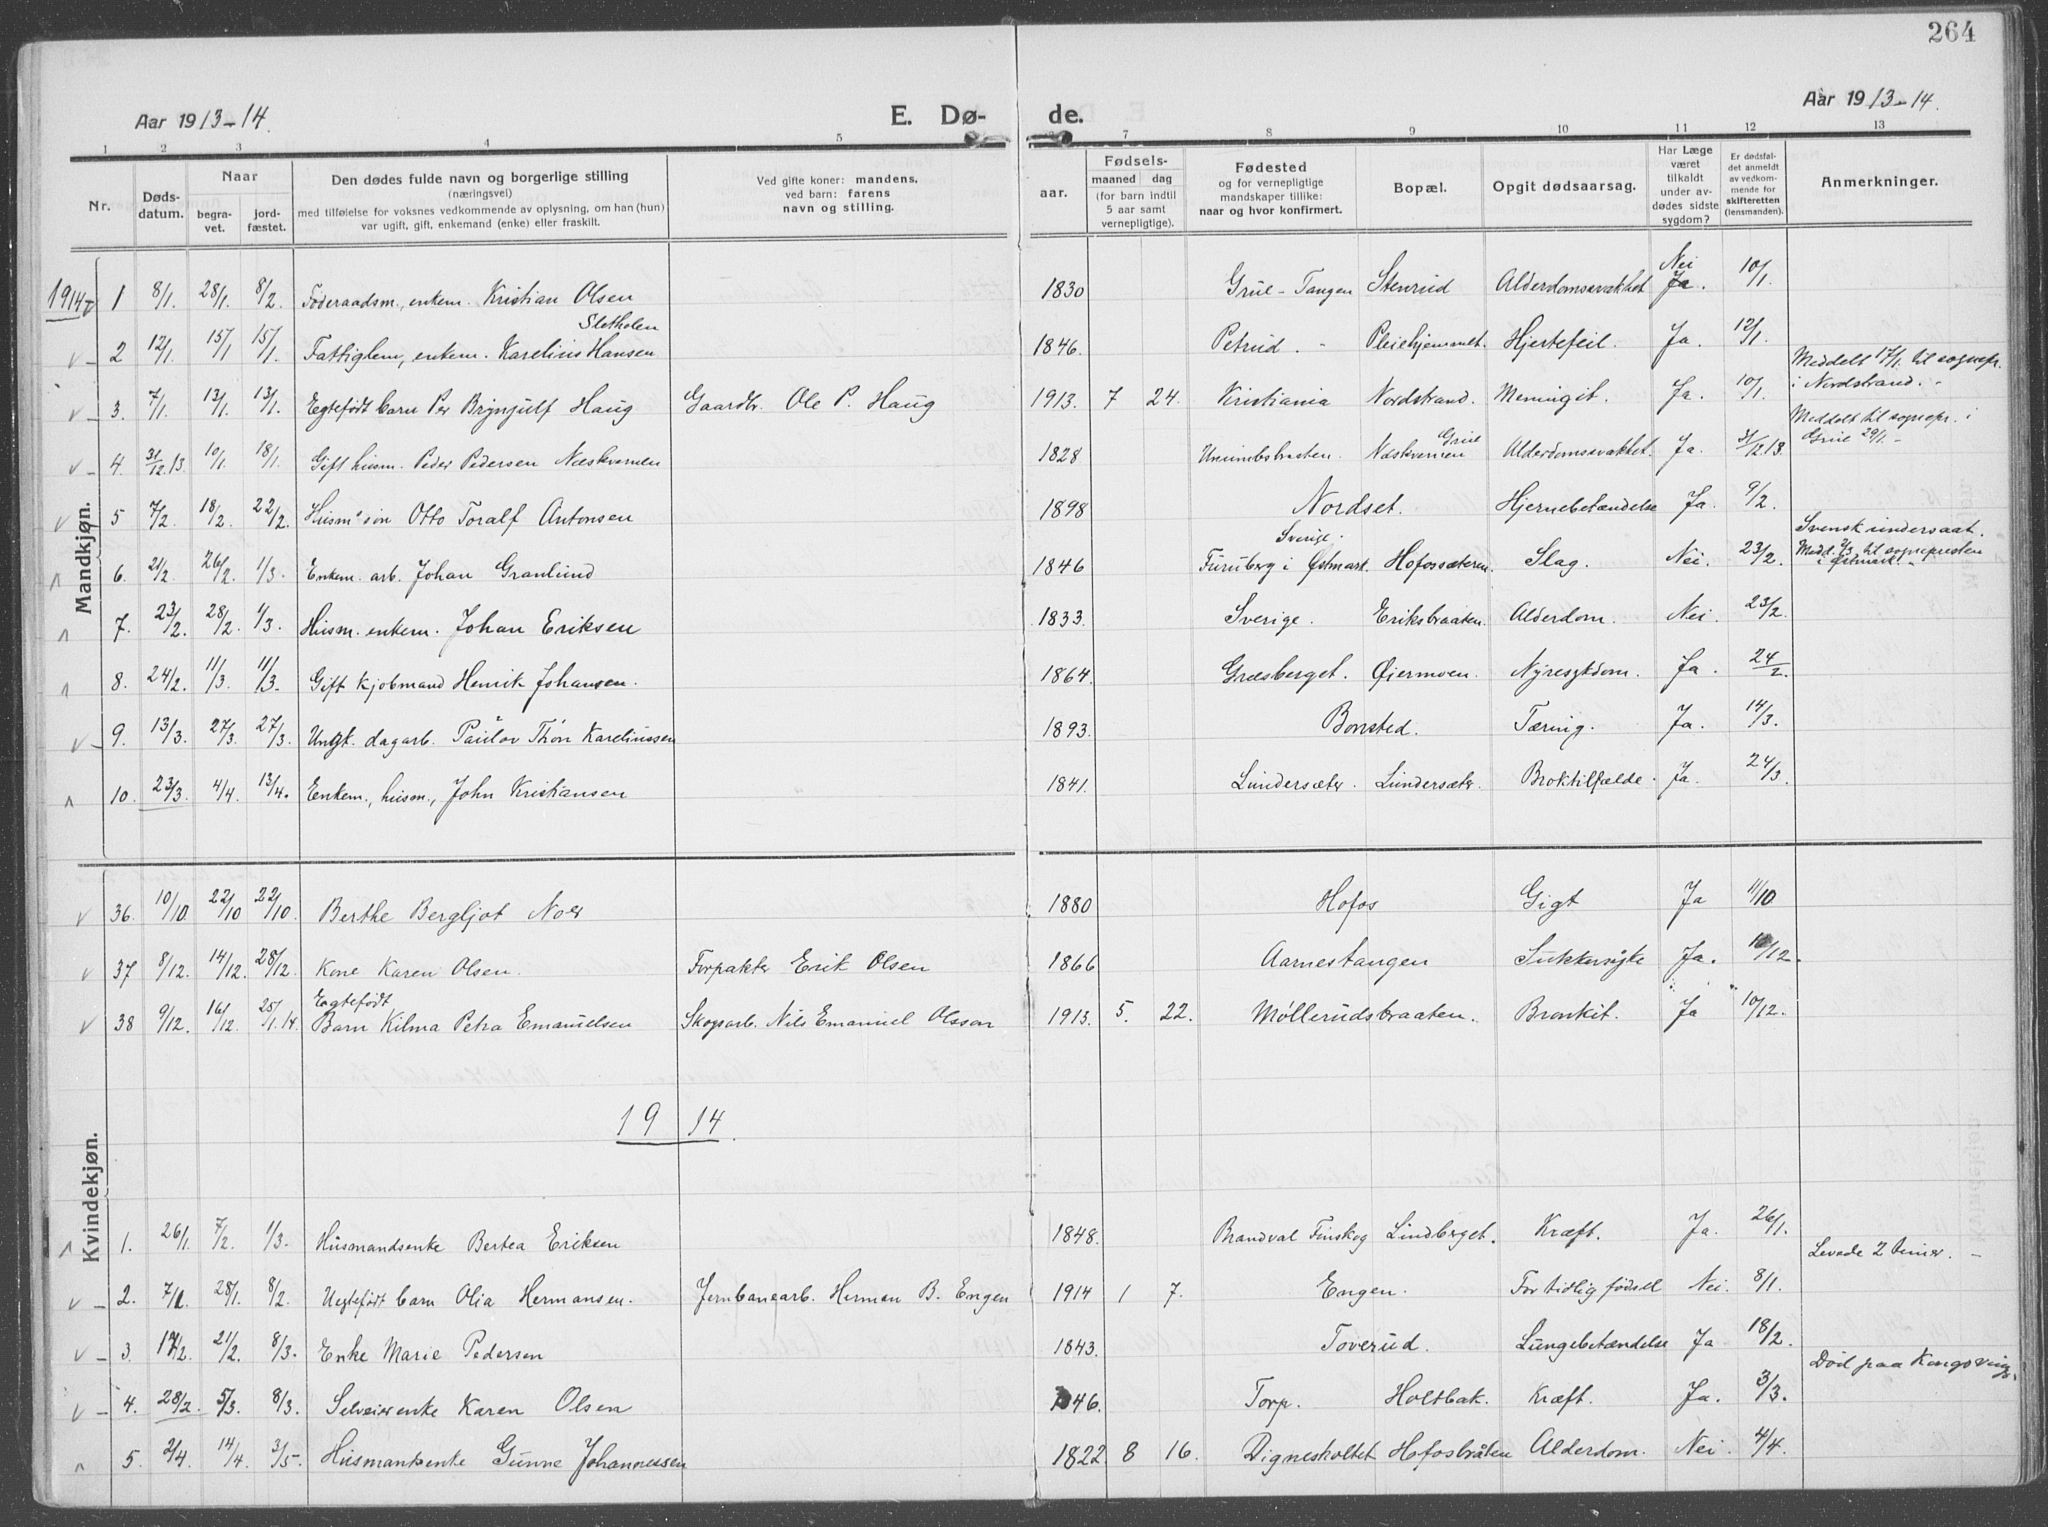 264
Aar 1913-14.
E. Dø-
de.
Aar 1913-14.
1 2 3 4 5 6 7 8 9 10 11 12 13
Nr.
Døds-
datum.
Naar
begra-
vet.
jord-
fæstet.
Den dødes fulde navn og borgerlige stilling
(næringsvei)
med tilføielse for voksnes vedkommende av oplysning, om han (hun)
var ugift, gift, enkemand (enke) eller fraskilt.
Ved gifte koner: mandens.
ved barn: farens
navn og stilling.
aar.
Fødsels-
maaned dag
(for barn indtil
5 aar samt
vernepligtige).
Fødested
og for vernepligtige
mandskaper tillike:
naar og hvor konfirmert.
Bopæl.
Opgit dødsaarsag.
Har Læge
været
tilkaldt
under av-
dødes sidste
sygdom?
Er dødsfal-
det anmeldt
av vedkom-
mende for
skifteretten
(lensmanden).
Anmerkninger.
Mandkjøn.
1914
1 8/1. 28/1. 8/2. Føderaadsm., enkem. Kristian Olsen 1830 Grue-Tangen Stenrud Alderdomssvækket Nei Ja. 10/1.
Slotholen
2 12/1. 15/1 15/1. Fattiglem, enkem. Karelius Hansen 1846. Petrud. - Pleiehjemmet. Hjertefeil. Ja. 12/1.
Meddelt 17/1. til sognepr.
i Nordstrand. -
3. 7/1. 13/1. 13/1. Egtefødt barn Per Brynjulf Haug Gaardbr. Ole P. Haug 1913. 7 24. Kristiania Nordstrand. Meningit. Ja. 10/1.
Meddelt til sognepr. i
Grue 29/1. -
4. 31/12.13. 10/1. 18/1. Gift husm. Peder Pedersen Næskvernen 1828 Næskvernen Grue Alderdomssvækket. Ja. 31/12.13.
5 7/2. 18/2. 22/2. Husm" søn Otto Toralf Antonsen 1898 Nordset. Hjernebetændelse Ja. 9/2.
Svensk undersaat.
Medd. 2/3 til sognepresten
i Østmark. -
6. 21/2. 26/2. 1/3. Enkem. arb. Johan Granlund 1846 Sverige. Furuberg i Østmark. Hofossæteren. Slag. Nei. 23/2.
7. 23/2. 28/2. 1/3. Husm. enkem. Johan Eriksen 1833. Sverige. Eriksbraaten. Alderdom. Nei. 23/2.
8. 24/2. 11/3. 11/3. Gift kjøbmand Henrik Johansen. 1864. Græsberget. Øiermoen. Nyresykdom. Ja. 24/2.
9. 13/3. 27/3. 27/3. Ungk. dagarb. Paulov Thon Kareliussen 1893. Bonsted. Tæring. Ja. 14/3.
10. 23/3. 4/4. 13/4. Enkem., husm., John Kristiansen 1841. Lundersæter. Lundersæter. Broktilfælde. Ja. 24/3.
Kvindekjøn.
36. 10/10. 22/10 22/10. Berthe Bergljot Noer 1880 Hofos Gigt Ja 11/10
37 8/12. 14/12. 28/12. Kone Karen Olsen. Forpakter Erik Olsen 1866 Aarnestangen Sukkersyke Ja. 10/12.
38 9/12. 16/12. 25/1.14. Egtefødt Barn Kilma Petra Emanuelsen Skogsarb. Nils Emanuel Olsson 1913. 5. 22. Møllerudsbraaten. Bronkit. Ja 10/12.
1914.
1. 26/1. 7/2. 1/3. Husmandsenke Bertea Eriksen 1848. Brandval Finskog Lindberget. Kræft. Ja. 26/1.
Levede 2 timer. -
2. 7/1. 28/1. 8/2. Uegtefødt barn Olia Hermansen. Jernbanearb. Herman B. Engen 1914 1 7. Engen. For tidlig fødsel Nei. 8/1.
3. 17/2. 21/2. 8/3. Enke Marie Pedersen 1843. Toverud. Lungebetændelse Ja 18/2.
Død paa Kongsving.
4. 28/2. 5/3. 8/3. Selveierenke Karen Olsen 46. Torp. Holtbak. Kræft. Ja. 3/3.
5. 2/4. 14/4. 3/5. Husmanhsenke Gunne Johannessen 1822. 8 16. Digneskoltet Hofosbråten Alderdom. Nei. 4/4.